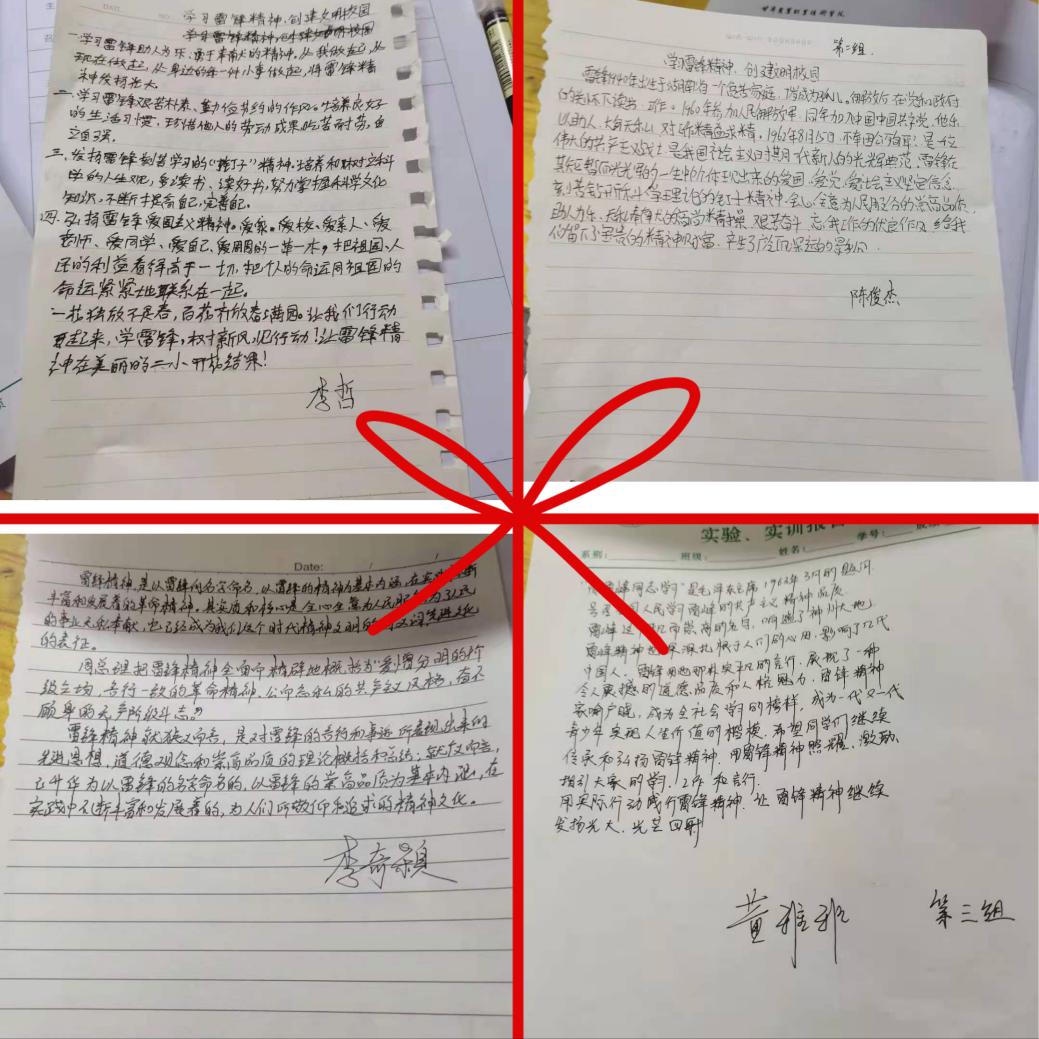 DATE
NO.
学习雷锋精神,创建文明校园
学习雷锋精神,创建文明校园
一.学习雷锋助人为乐、勇于奉献的精神,从我做起,从
现在做起,从身边的每一件小事做起,将雷锋精
神发扬光大。
二.学习雷锋艰苦朴素、勤俭节约的作风。培养良好
的生活习惯,珍惜他人的劳动成果吃苦耐劳,自
立自强。
三、发扬雷锋刻苦学习的“钉子”精神,培养和树立科
学的人生观,多读书、读好书,努力掌握科学文化
知识,不断丰富自己,完善自己。
四.弘扬雷锋爱国主义精神。爱家。爱校、爱亲人、爱
老师、爱同学、爱自己、爱周围的一草一木,把祖国、人
民的利益看得高于一切,把个人的命运同祖国的
命运紧紧地联系在一起。
一花独放不是春,百花齐放春满园。让我们行动
起来,学雷锋,树新风,见行动!让雷锋精
神在美丽的二小开花结果!
李哲
第二组.
学习雷锋精神、创建文明校园
雷锋1940年出生于湖南省一个贫苦家庭,
的关怀下读书、工作。1960年参加人民解放军,同年加入中国中国共产党,他乐
以助人,大公无私,对技术精益求精,1962年8月15日,不幸因公殉职,是一位
伟大的共产主义战士是我国社会主义时期一代新人的光辉典范,雷锋在
其短暂而光辉的一生中所体现出来的爱国、爱党、爱社会主义坚定信念、
刻苦钻研的钉子精神,全心全意为人民服务的
助人为乐、无私奉献的高尚精神情操,艰苦奋斗、忘我工作的优良作风给我
们留下了宝贵的精神财富,产生了广泛而深远的影响。
陈俊杰
Date:
雷锋精神,是以雷锋的名字命名,以雷锋的精神为基本内涵,在实践中不断
丰富和发展着的革命精神,其实质和核心是全心全意为人民服务,为了人民
的事业无私奉献,它已经成为我们这个时代精神文明的先进文化
的表征。
周总理把雷锋精神全面而精辟地概括为“爱憎分明的阶
级立场、言行一致的革命精神、公而忘私的共产主义风格,奋不
顾身的无产阶级斗志。”
雷锋精神就狭义而言,是对雷锋的言行和事迹所表现出来的
先进思想,道德观念和崇高品质的理论概括和总结;就广义而言,
已升华为以雷锋的名字命名的,以雷锋的崇高品质为基本内涵,在
实践中不断丰富和发展着的,为人们所敬仰和追求的精神文化。
李奇颖
实验、实训报告
系别:
班级:
姓名:
学号:
雷锋同志学习”是毛泽东主席1963年3月的题词
人民学习雷锋的共产主义精神品质
雷锋这个平凡而崇高的名字,响遍了神州大地,
雷锋精神也深深扎根于人们的心田,影响了几代
中国人,雷锋用他那朴实平凡的言行,展现了一种
令人震撼的道德品质和人格魅力,雷锋精神
家喻户晓,成为全社会学习的榜样,成为一代又一代
青少年实现人生价值的楷模,希望同学们继续
传承和弘扬雷锋精神,用雷锋精神照耀、激励、
指引大家的学习、工作和言行.
用实际行动践行雷锋精神,让雷锋精神继续
发扬光大,光芒四射
黄雅
第三组